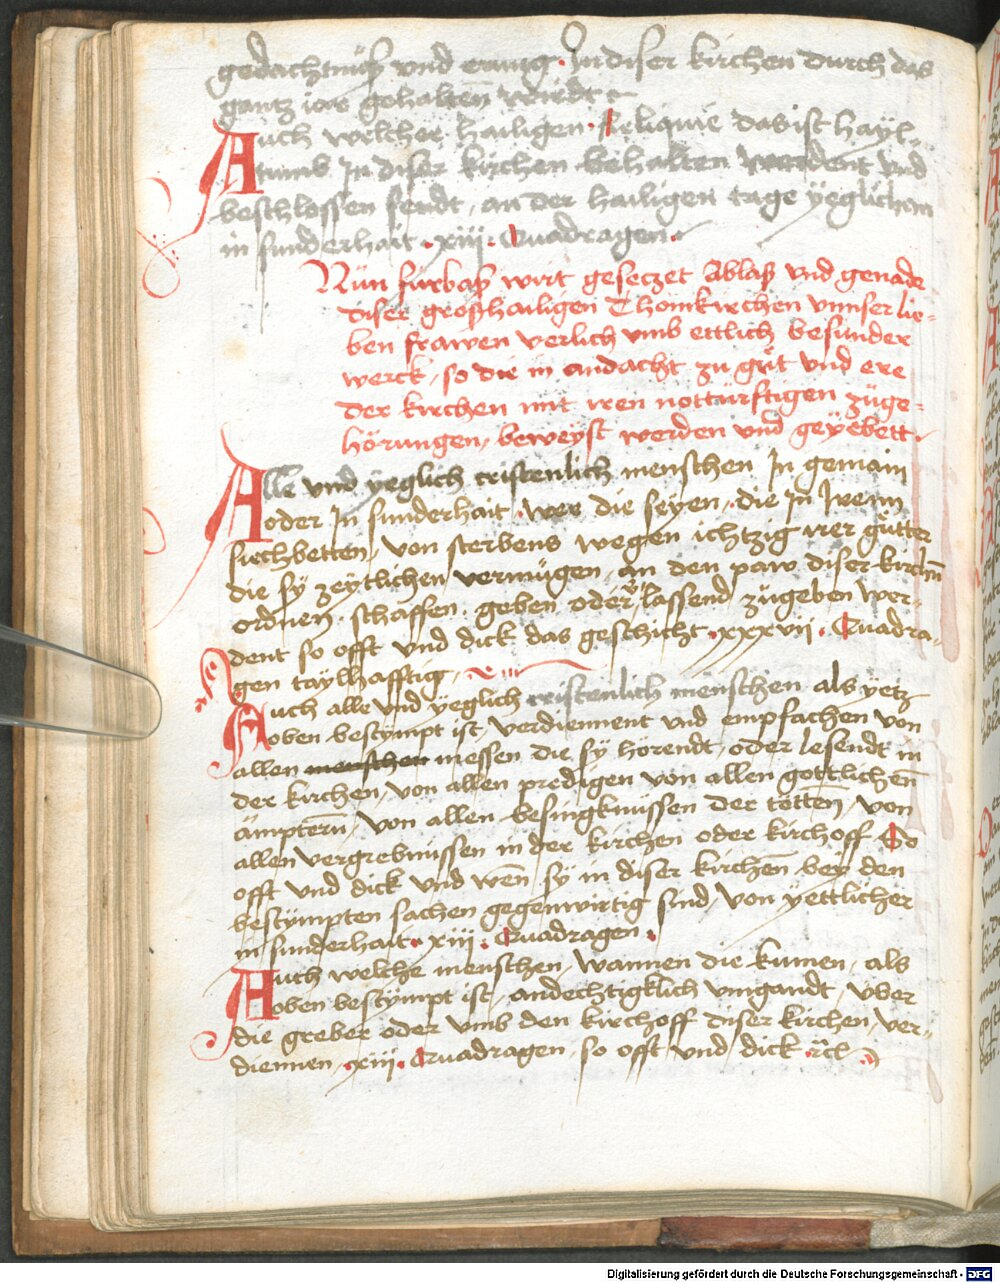 gedachtnüß vnd erung · In diser kirchen durch das
gantz iare gehalten wirdt
Auch welcher hailigen · Reliquie das ist hayl-
tumb In diser kirchen behalten werdent vnd
beschlossen sendt, an der hailigen tage yeglichem
in sunderhait · xiii · Quadragen ·
Nün fürbaß wirt geseczet Ablaß vnd genade
diser großhailigen Thomkirchen vnnser lie-
ben frawen verlich vmb ettlich besunder
werck, so die in andacht zu güt vnd ere
der kirchen mit iren notturftigen züge-
hörungen, beweyst werden vnd geyebett ·
Alle vnd yeglich cristenlich menschen In gemain
oder In sunderhait, wer die seyen, die In Irenn
siechbetten, von sterbens wegen ichtzig irer gütter
die sy zeytlichen vermügen, an den paw diser kirchn
ordnen, schaffen, geben, oder lassend zügeben wer-
dent so offt vnd dick das geschicht · xxxvii · Quadra-
gen taylhafftig,
Auch alle vnd yeglich cristenlich menschen als yetz
oben bestympt ist, verdiennent vnd empfachen von
allen menschen messen die sy hörendt, oder lesendt in
der kirchen, von allen predigen von allen gottlichen
ämptern, von allen besingknussen der totten, von
allen vergrebnussen in der kirchen oder kirchoff So
offt vnd dick vnd wen sy in diser kirchen bey den
bestympten sachen gegenwirtig sind, von yettlicher
in sunderhait · xiii · Quadragen ·
Auch welche menschen, wannen die kumen, als
oben bestympt ist, andechtigklich vmgandt, vber
die greber oder vmb den kirchoff diser kirchen, ver-
diennen, · xiii · Quadragen, so offt vnd dick
Digitalisierung gefördert durch die Deutsche Forschungsgemeinschaft - DFG